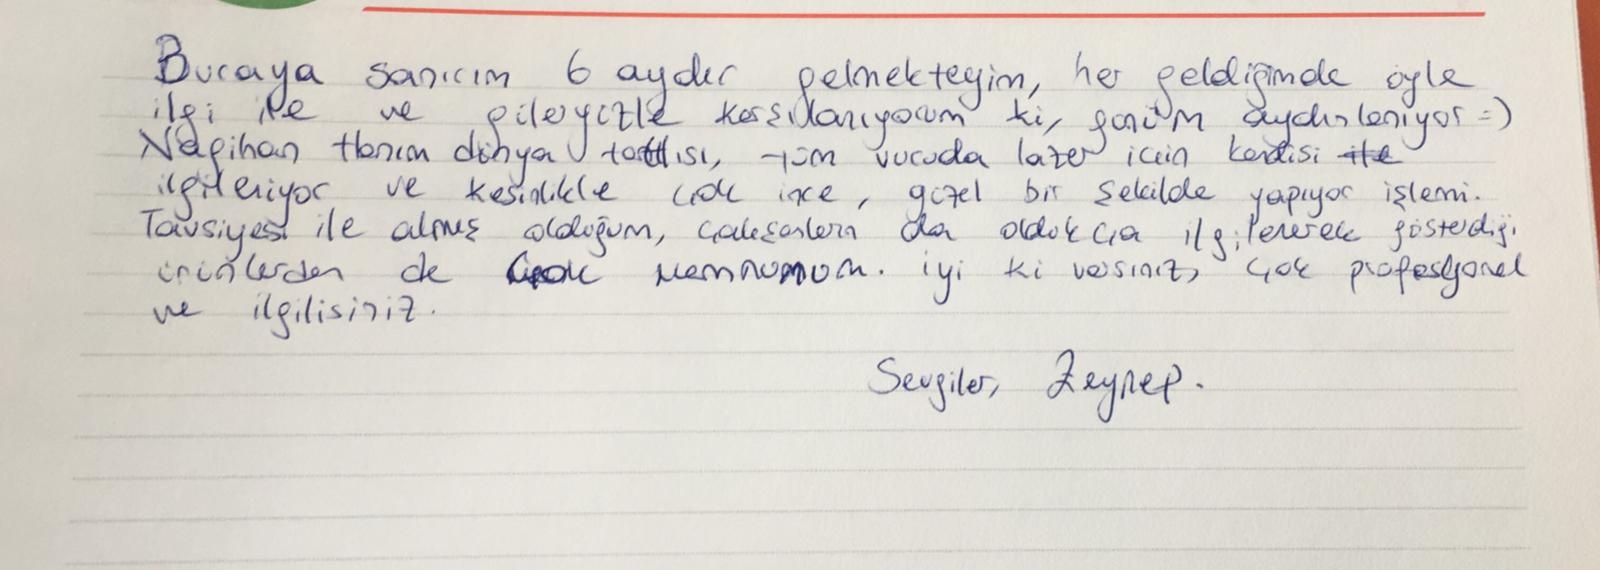 Buraya sanırım 6 aydır gelmekteyim, her geldiğimde öyle
ilgi ile ve güleryüzle karşılanıyorum ki, günüm aydınlanıyor =)
Nagihan Hanım dünya tatlısı, tüm vücuda lazer için kendisi
ilgileniyor ve kesinlikle çok ince, güzel bir şekilde yapıyor işlemi.
Tavsiyesi ile almış olduğum, çalışanların da oldukça ilgilenerek gösterdiği
ürünlerden de çok memnunum. iyi ki varsınız, çok profesyonel
ve ilgilisiniz.
Sevgiler, Zeynep.